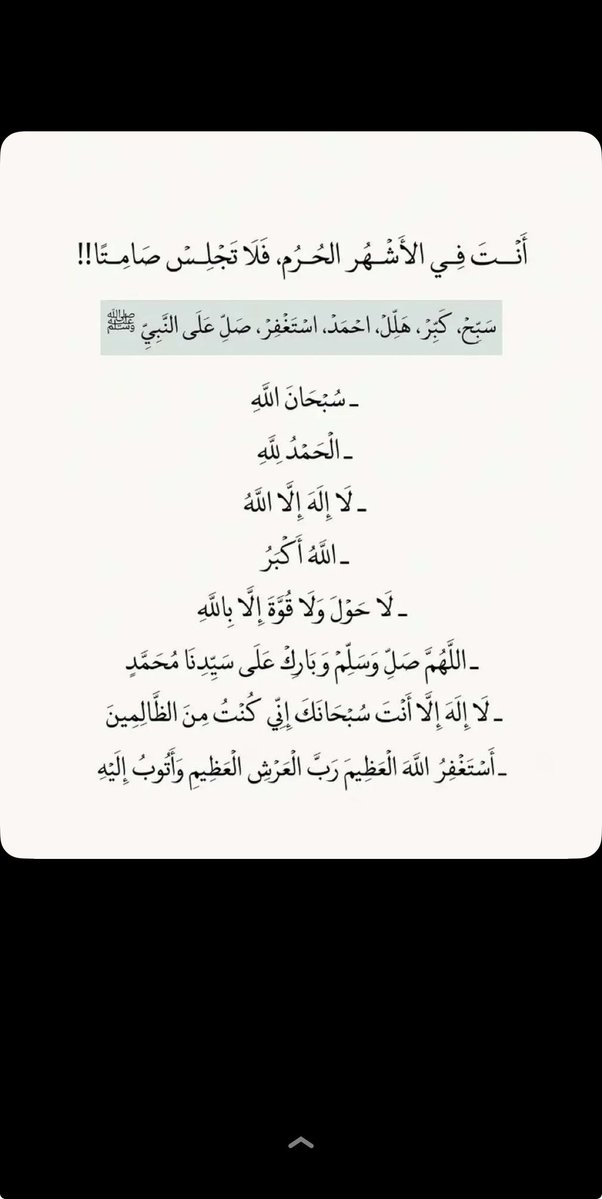 أَنْـــتَ فِـي الأَشْـــهُرِ الحُــرُمِ، فَلَا تَجْلِــسْ صَامِــتًا!!
سَبِّحْ، كَبِّرْ، هَلِّلْ، احْمَدْ، اسْتَغْفِرْ، صَلِّ عَلَى النَّبِيِّ ﷺ
ـ سُبْحَانَ اللَّهِ
ـ الْحَمْدُ لِلَّهِ
ـ لَا إِلَهَ إِلَّا اللَّهُ
ـ اللَّهُ أَكْبَرُ
ـ لَا حَوْلَ وَلَا قُوَّةَ إِلَّا بِاللَّهِ
ـ اللَّهُمَّ صَلِّ وَسَلِّمْ وَبَارِكْ عَلَى سَيِّدِنَا مُحَمَّدٍ
ـ لَا إِلَهَ إِلَّا أَنْتَ سُبْحَانَكَ إِنِّي كُنْتُ مِنَ الظَّالِمِينَ
ـ أَسْتَغْفِرُ اللَّهَ الْعَظِيمَ رَبَّ الْعَرْشِ الْعَظِيمِ وَأَتُوبُ إِلَيْهِ